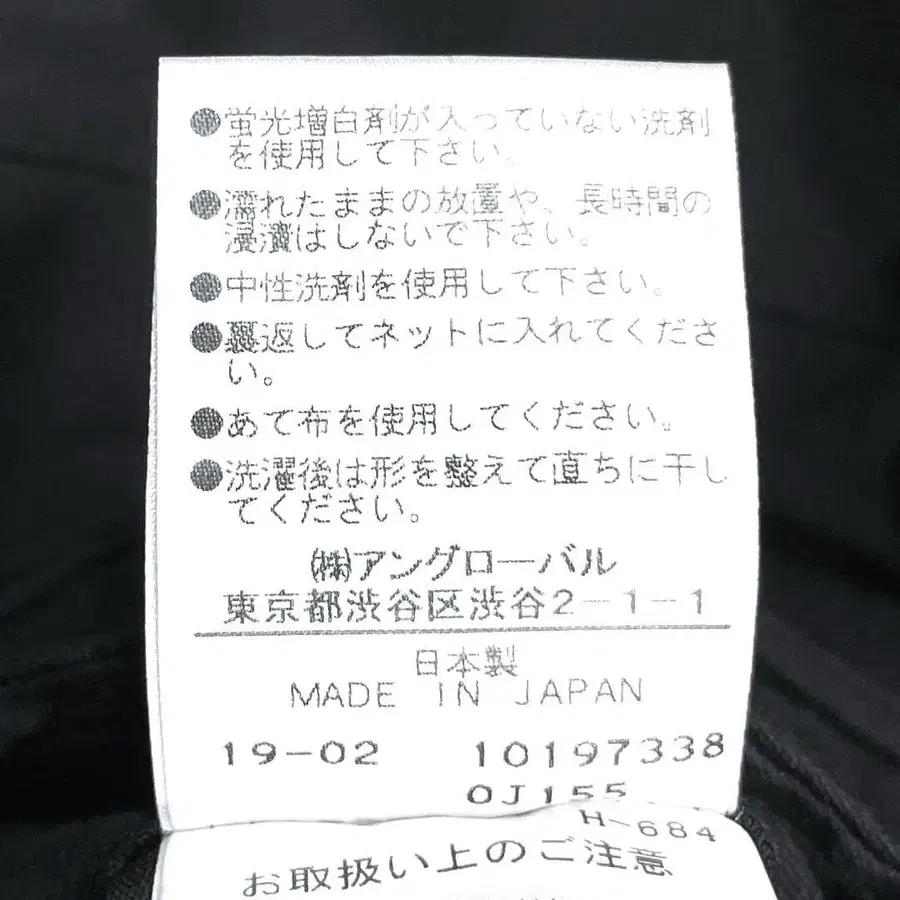 ●蛍光増白剤が入っていない洗剤
を使用して下さい。
●濡れたままの放置や、長時間の
浸漬はしないで下さい。
●中性洗剤を使用して下さい。
●裏返してネットに入れてくださ
い。
●あて布を使用してください。
●洗濯後は形を整えて直ちに干し
てください。
㈱アングローバル
東京都渋谷区渋谷2-1-1
日本製
MADE IN JAPAN
19-02 10197338
0J155
H-684
お取扱い上のご注意